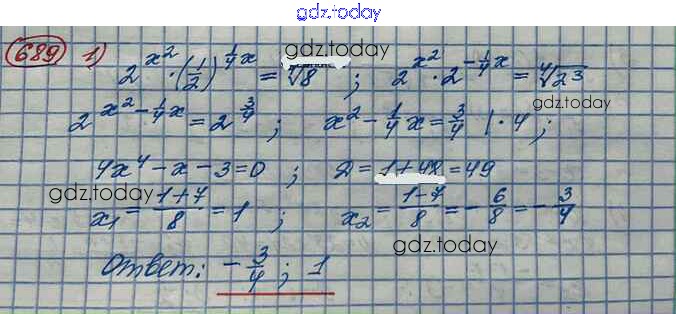 gdz.today
689 1) 2^{x^2} · (1/2)^{1/4 x} = ⁴√8 ; 2^{x^2} · 2^{-1/4 x} = ⁴√2^3
gdz.today
gdz.today
2^{x^2 - 1/4 x} = 2^{3/4} ; x^2 - 1/4 x = 3/4 | · 4 ;
4x^4 - x - 3 = 0 ; D = 1 + 48 = 49
gdz.today
x_1 = (1+7)/8 = 1 ; x_2 = (1-7)/8 = - 6/8 = - 3/4
gdz.today
Ответ: - 3/4 ; 1
gdz.today